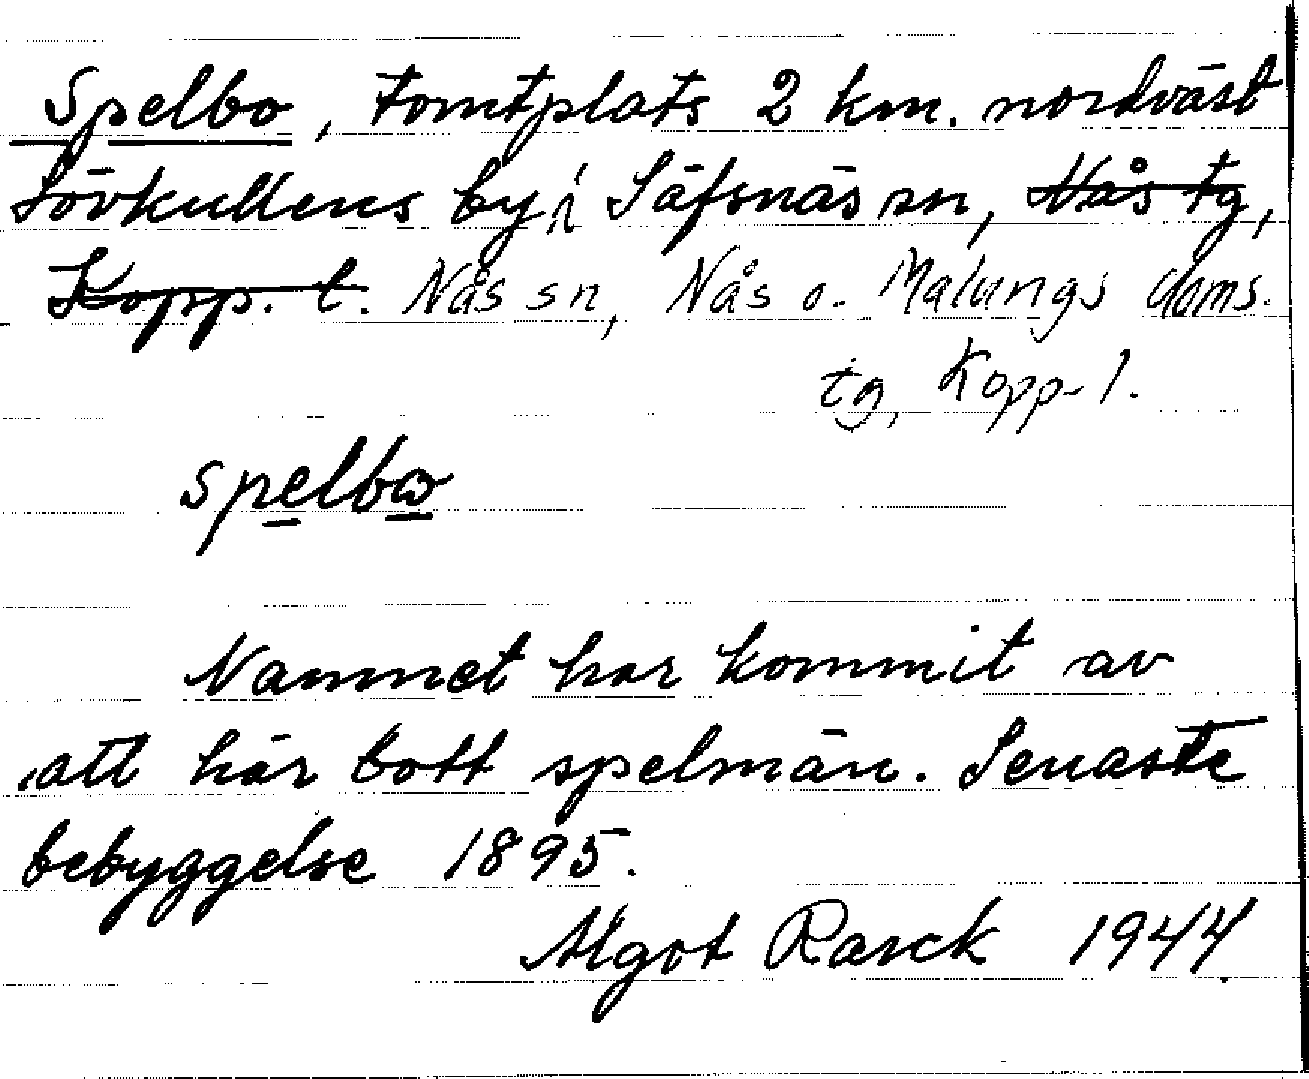 Spelbo, tomtplats 2 km. nordväst
Lövkullens by i Säfsnäs sn, Nås tg,
Kopp. l. Nås sn, Nås o. Malungs doms.
tg, Kopp. l.
spelbω
Namnet har kommit av
att här bott spelmän. Senaste
bebyggelse 1895.
Algot Rasck 1944